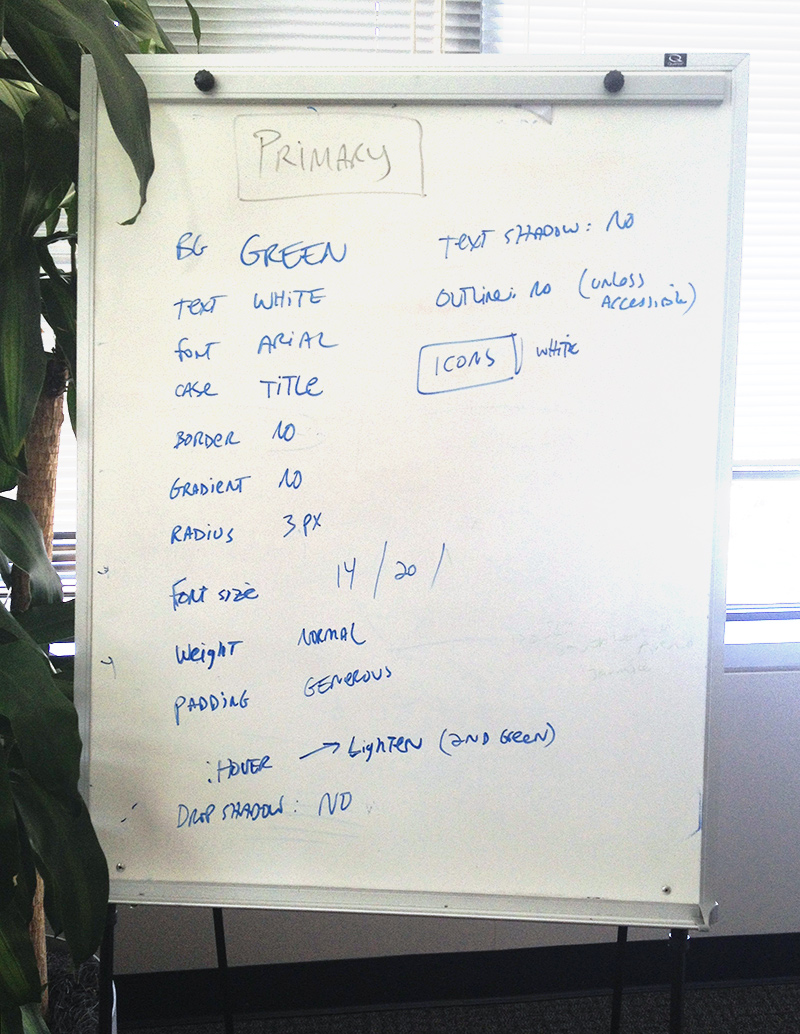 PRIMARY
BG GREEN
TEXT WHITE
FONT ARIAL
CASE TITLE
BORDER NO
GRADIENT NO
RADIUS 3 PX
FONT SIZE 14 / 20 /
WEIGHT NORMAL
PADDING GENEROUS
:HOVER → LIGHTEN (2ND GREEN)
DROP SHADOW: NO
TEXT SHADOW: NO
OUTLINE: NO (UNLESS
ACCESSIBLE)
ICONS WHITE